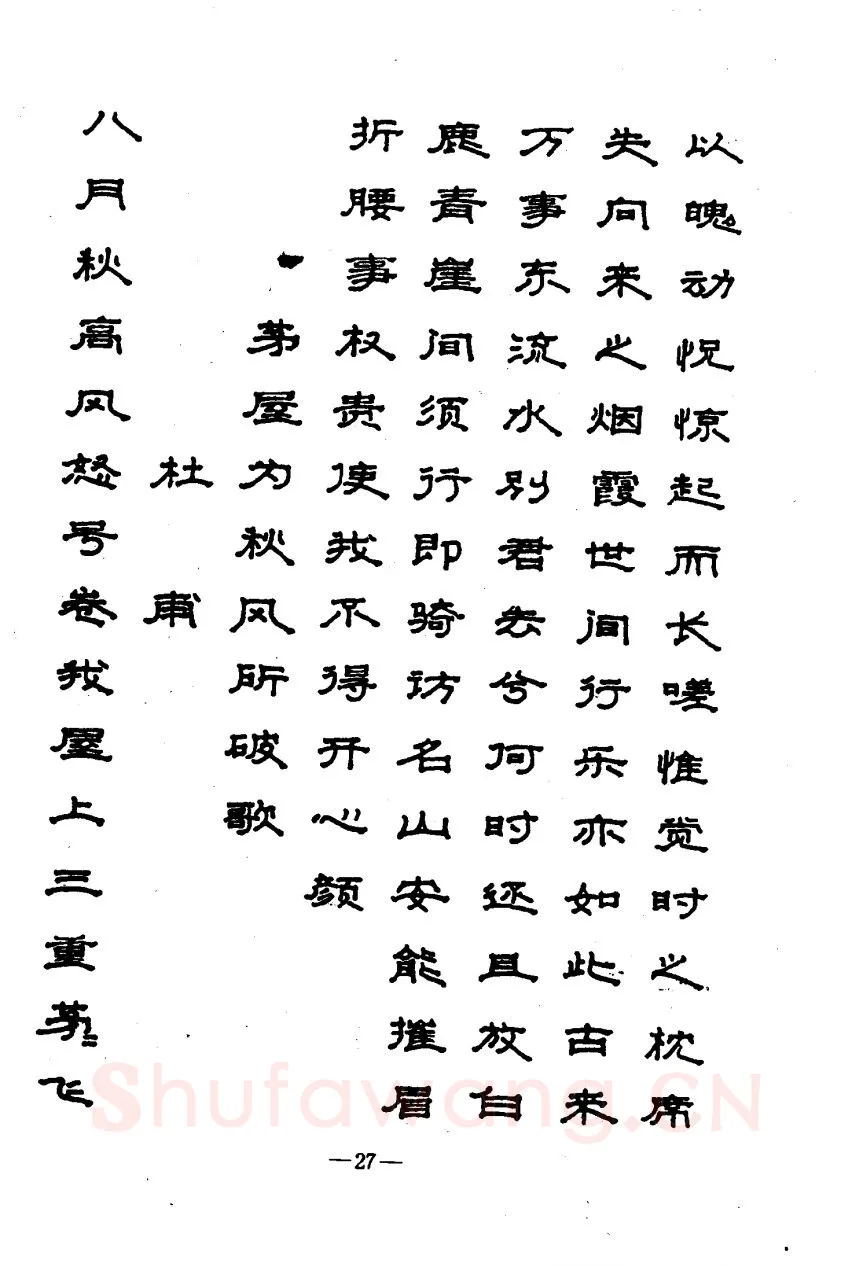 以魄动怳惊起而长嗟惟觉时之枕席
失向来之烟霞世间行乐亦如此古来
万事东流水别君去兮何时还且放白
鹿青崖间须行即骑访名山安能摧眉
折腰事权贵使我不得开心颜
茅屋为秋风所破歌
杜甫
八月秋高风怒号卷我屋上三重茅〻飞
—27—
Shufawang.CN